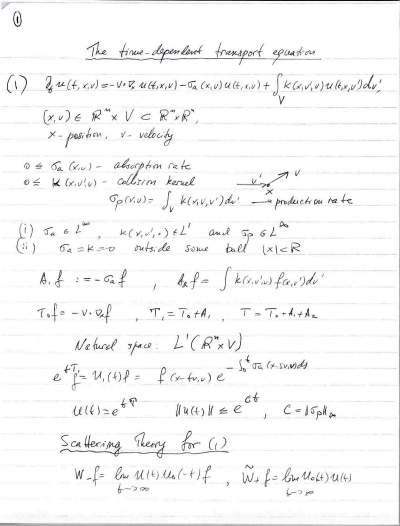 ①
The time-dependent transport equation
(1) ∂_t u(t,x,v) = -v·∇_x u(t,x,v) - σ_a(x,v)u(t,x,v) + ∫_V k(x,v',v)u(t,x,v')dv',
(x,v) ∈ R^n × V ⊂ R^n × R^n,
x - position, v - velocity
0 ≤ σ_a(x,v) - absorption rate
0 ≤ k(x,v',v) - collision kernel
v' x v
σ_p(x,v) = ∫_V k(x,v,v')dv' → production rate
(i) σ_a ∈ L^∞, k(x,v',·) ∈ L^1 and σ_p ∈ L^∞
(ii) σ_a = k = 0 outside some ball |x| < R
A_1 f := -σ_a f , A_2 f = ∫ k(x,v',v) f(x,v')dv'
T_0 f = -v·∇_x f , T_1 = T_0 + A_1 , T = T_0 + A_1 + A_2
Natural space: L^1(R^n × V)
e^{tT_1} f = U_1(t)f = f(x-tv,v) e^{-∫_0^t σ_a(x-sv,v)ds}
U(t) = e^{tT} ‖U(t)‖ ≤ e^{Ct} , C = ‖σ_p‖_∞
Scattering Theory for (1)
W_- f = lim_{t→∞} U(t)U_0(-t) f , W̃_+ f = lim_{t→∞} U_0(-t)U(t)